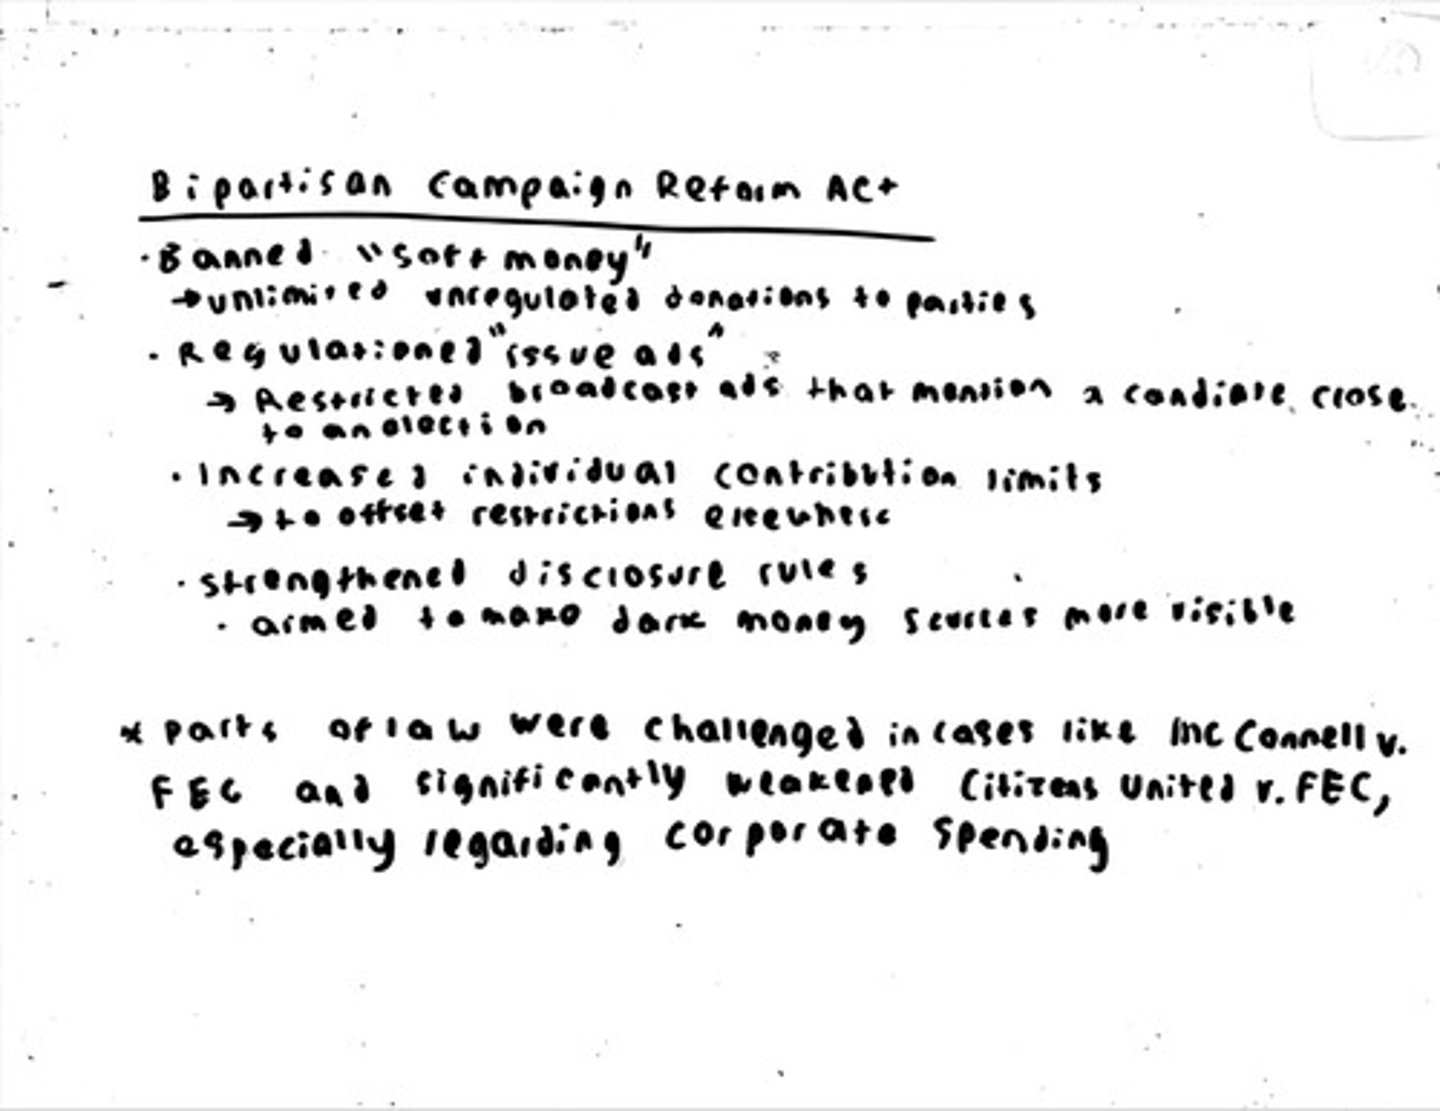 Bipartisan Campaign Reform Act
· Banned "soft money"
→ unlimited unregulated donations to parties
· Regulationed "issue ads"
→ Restricted broadcast ads that mention a candiate close
to an election
· Increased individual contribution limits
→ to offset restrictions elsewhere
· strengthened disclosure rules
· aimed to make dark money sources more visible
* parts of law were challenged in cases like McConnell v.
FEC and significantly weakened Citizens United v. FEC,
especially regarding corporate spending